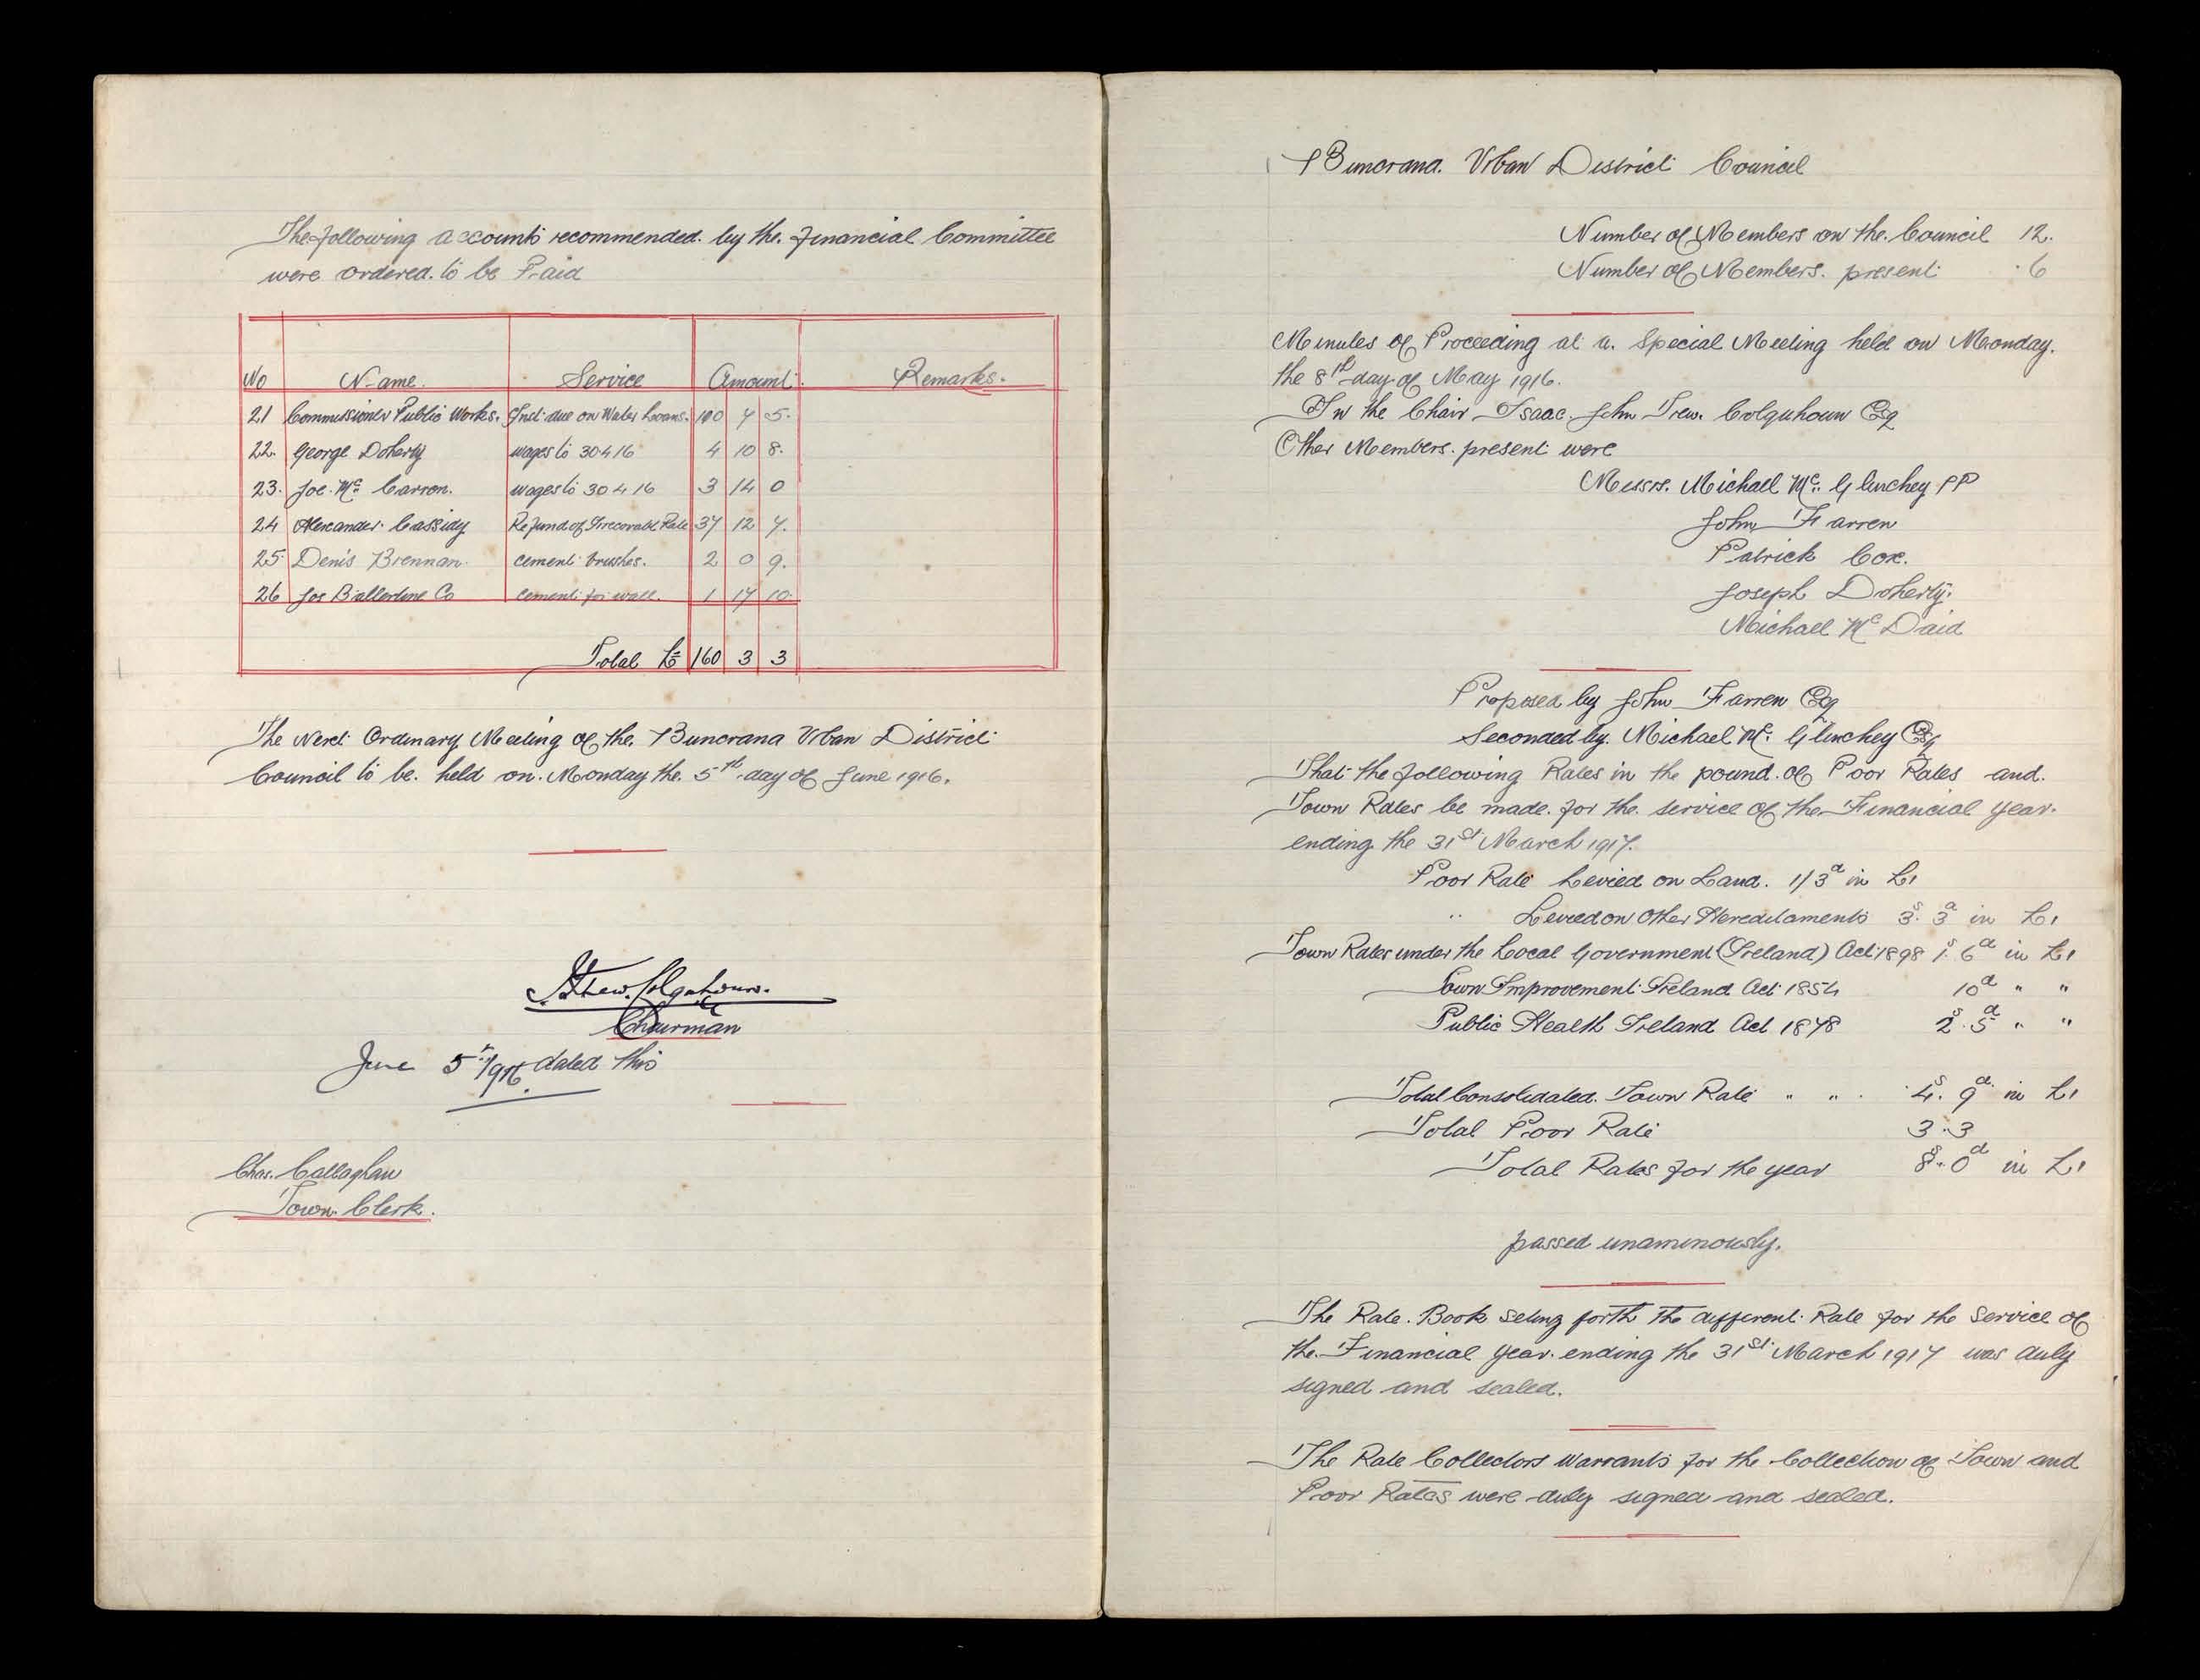 The following accounts recommended. by the. Financial Committee
were ordered. to be Paid
No Name. Service Amount. Remarks.
21 Commissioner Public Works. Inst. due on Water Loans. 100 7 5.
22. George Doherty wages to 30 4 16 4 10 8.
23. Joe. Mc Carron. wages to 30 4 16 3 14 0
24 Alexander. Cassidy Refund of Irrecovable Rate 37 12 7.
25. Denis Brennan. cement brushes. 2 0 9.
26 Jos Ballentine Co cement for wall. 1 17 10.
Total £ 160 3 3
The Next Ordinary Meeting of the. Buncrana Urban District
Council to be. held on. Monday the. 5th day of June 1916.
I J Trew. Colquhoun.
Chairman
June 5th/1916. dated this
Chas. Callaghan
Town. Clerk.
Buncrana. Urban District Council
Number of Members on the. Council 12.
Number of Members. present. 6
Minutes of Proceeding at a. Special Meeting held on Monday.
the 8th day of May 1916.
In the Chair Isaac. John Trew. Colquhoun Esq
Other Members. present were
Messrs. Michael Mc. Glinchey PP
John Farren
Patrick Cox.
Joseph Doherty.
Michael Mc Daid
Proposed by John Farren Esq
Seconded by. Michael Mc. Glinchey Esq
That the following Rates in the pound. of Poor Rates and.
Town Rates be made. for the. service of the Financial year.
ending the 31st March 1917.
Poor Rate Levied on Land. 1/3d in £1
" Levied on Other Hereditaments 3s. 3d in £1
Town Rates under the Local Government (Ireland) Act 1898 1s. 6d in £1
Town Improvement Ireland Act 1854 10d " "
Public Health Ireland Act 1878 2s. 5d " "
Total Consolidated. Town Rate " " . 4s. 9d. in £1
Total Poor Rate 3 . 3
Total Rates for the year 8s. 0d in £1
passed unaminously.
The Rate. Book seting forth the different Rate for the Service of
the Financial year. ending the 31st March 1917 was duly
signed and sealed.
The Rate Collectors Warrants for the Collection of Town and
Poor Rates were duly signed and sealed.